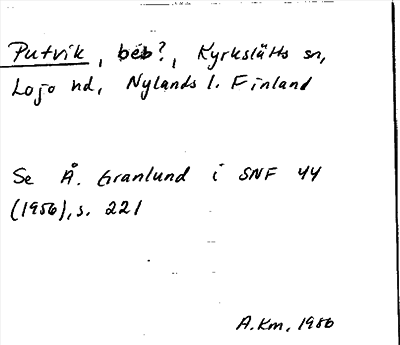 Putvik, beb?, Kyrkslätts sn,
Lojo hd, Nylands l. Finland
Se Å. Granlund i SNF 44
(1956), s. 221
A.Km. 1956